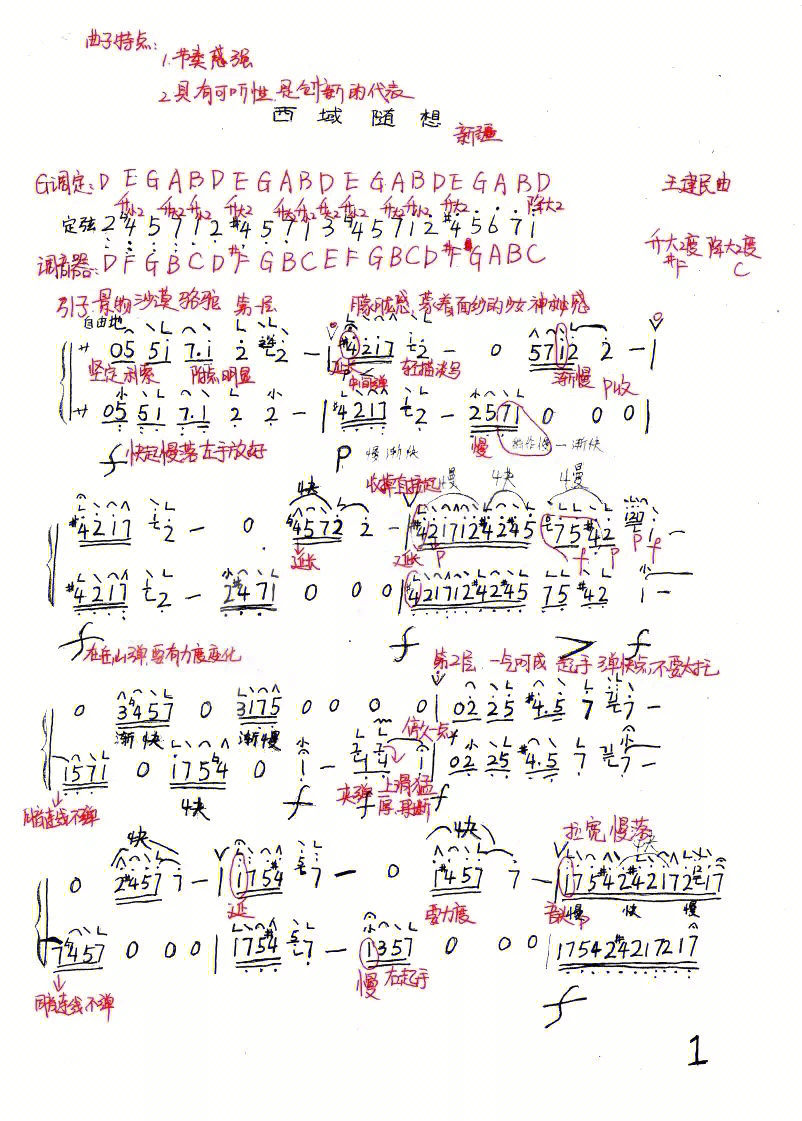 曲子特点:
1.节奏感强
2.具有可听性.是创新的代表
西域随想
新疆
G调定: D E G A B D E G A B D E G A B D E G A B D
王建民曲
升小2 升大2 升小2 升大2 降大2
定弦 2 #4 5 7 1 2 #4 5 7 1 3 #4 5 7 1 2 #4 5 6 7 1
升大2度 降大2度
#F C
调音器: D F G B C D #F G B C E F G B C D #F G A B C
引子.景物 沙漠 骆驼 第一层 朦胧感 蒙着面纱的少女神秘感
自由地
05 51 7.1 2 2 – | #4217 2 – 0 5712 2 – |
坚定利索 附点明显 延长 中间弹 轻描淡写 渐慢 P收
05 51 7.1 2 2 – | #4217 2 – 2571 0 0 0 |
f 快起慢落左手放好 P 慢渐快 慢 渐快
慢 快 慢
#4217 2 – 0 #4572 2 – | #421712#42#45 75 #42 1 –
延长 延长 P f P P f
#4217 2 – 2#471 0 0 0 | #421712#42#45 75 #42 1 –
f f f
在岳山弹.要有力度变化 第2层 一气呵成 起手3弹快点,不要太拖
0 3457 0 3175 0 0 0 0 | 02 25 #4.5 7 7 –
渐快 渐慢 停久一点
1571 0 1754 0 1 – 4 4 1 | 02 25 #4.5 7 7 –
同音连线不弹 快 f 夹弹 f 上滑猛 f
快 快 拉宽慢落
0 2#457 7 – | 1754 7 – 0 1#457 7 – | 17542#42172 17
延 要力度 慢 快 慢
7457 0 0 0 | 175#4 7 – 1357 0 0 0 | 17542#4217217
同音连线不弹 慢 右起手 f
1